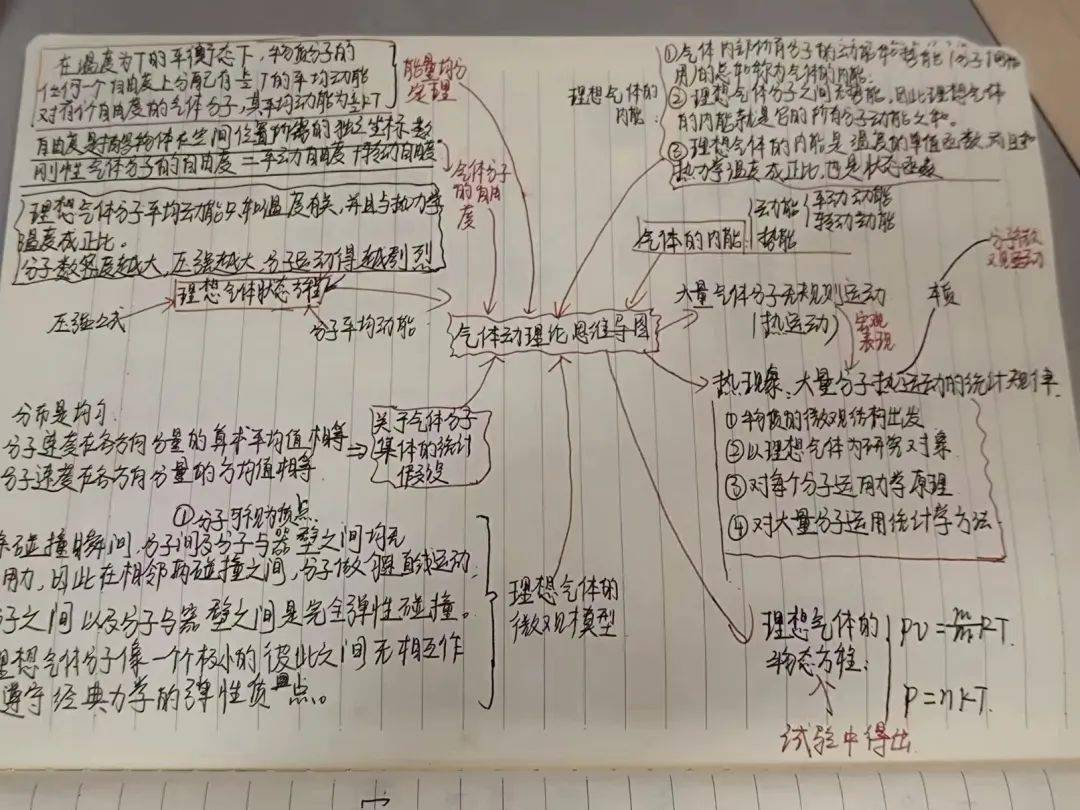 在温度为T的平衡态下，物质分子的
任何一个自由度上分配有 T的平均动能
对有i个自由度的气体分子，其平均动能为 kT
能量均分
定理
自由度是描写物体在空间位置所需的独立坐标数
刚性气体分子的自由度=平动自由度+转动自由度.
气体分子
的自由
度
理想气体分子平均动能只和温度有关，并且与热力学
温度成正比。
分子数密度越大，压强越大，分子运动得越剧烈
理想气体状态方程
压强公式
分子平均动能
气体动理论思维导图
理想气体的
内能
①气体内部所有分子的动能和势能(分子间相
用)的总和称为气体的内能.
②理想气体分子之间无势能，因此理想气体
的内能就是它的所有分子动能之和。
③理想气体的内能是温度的单值函数,而且和
热力学温度成正比,也是状态函数
气体的内能
动能
平动动能
转动动能
势能
大量气体分子无规则运动
(热运动)
宏观
表现
本质
分子微
观运动
热现象、大量分子热运动的统计规律.
①物质的微观结构出发
②以理想气体为研究对象
③对每个分子运用力学原理
④对大量分子运用统计学方法
分布是均匀
分子速度在各方向分量的算术平均值相等
分子速度在各方向分量的方均值相等
关于气体分子
集体的统计
假设
①分子可视为质点
碰撞瞬间,分子间及分子与器壁之间均无
用力,因此在相邻两碰撞之间,分子做匀速直线运动
子之间以及分子与器壁之间是完全弹性碰撞。
理想气体分子像一个个极小的彼此之间无相互作
遵守经典力学的弹性质点。
理想气体的
微观模型
理想气体的
物态方程:
PV=m/m RT.
P=nKT.
试验中得出